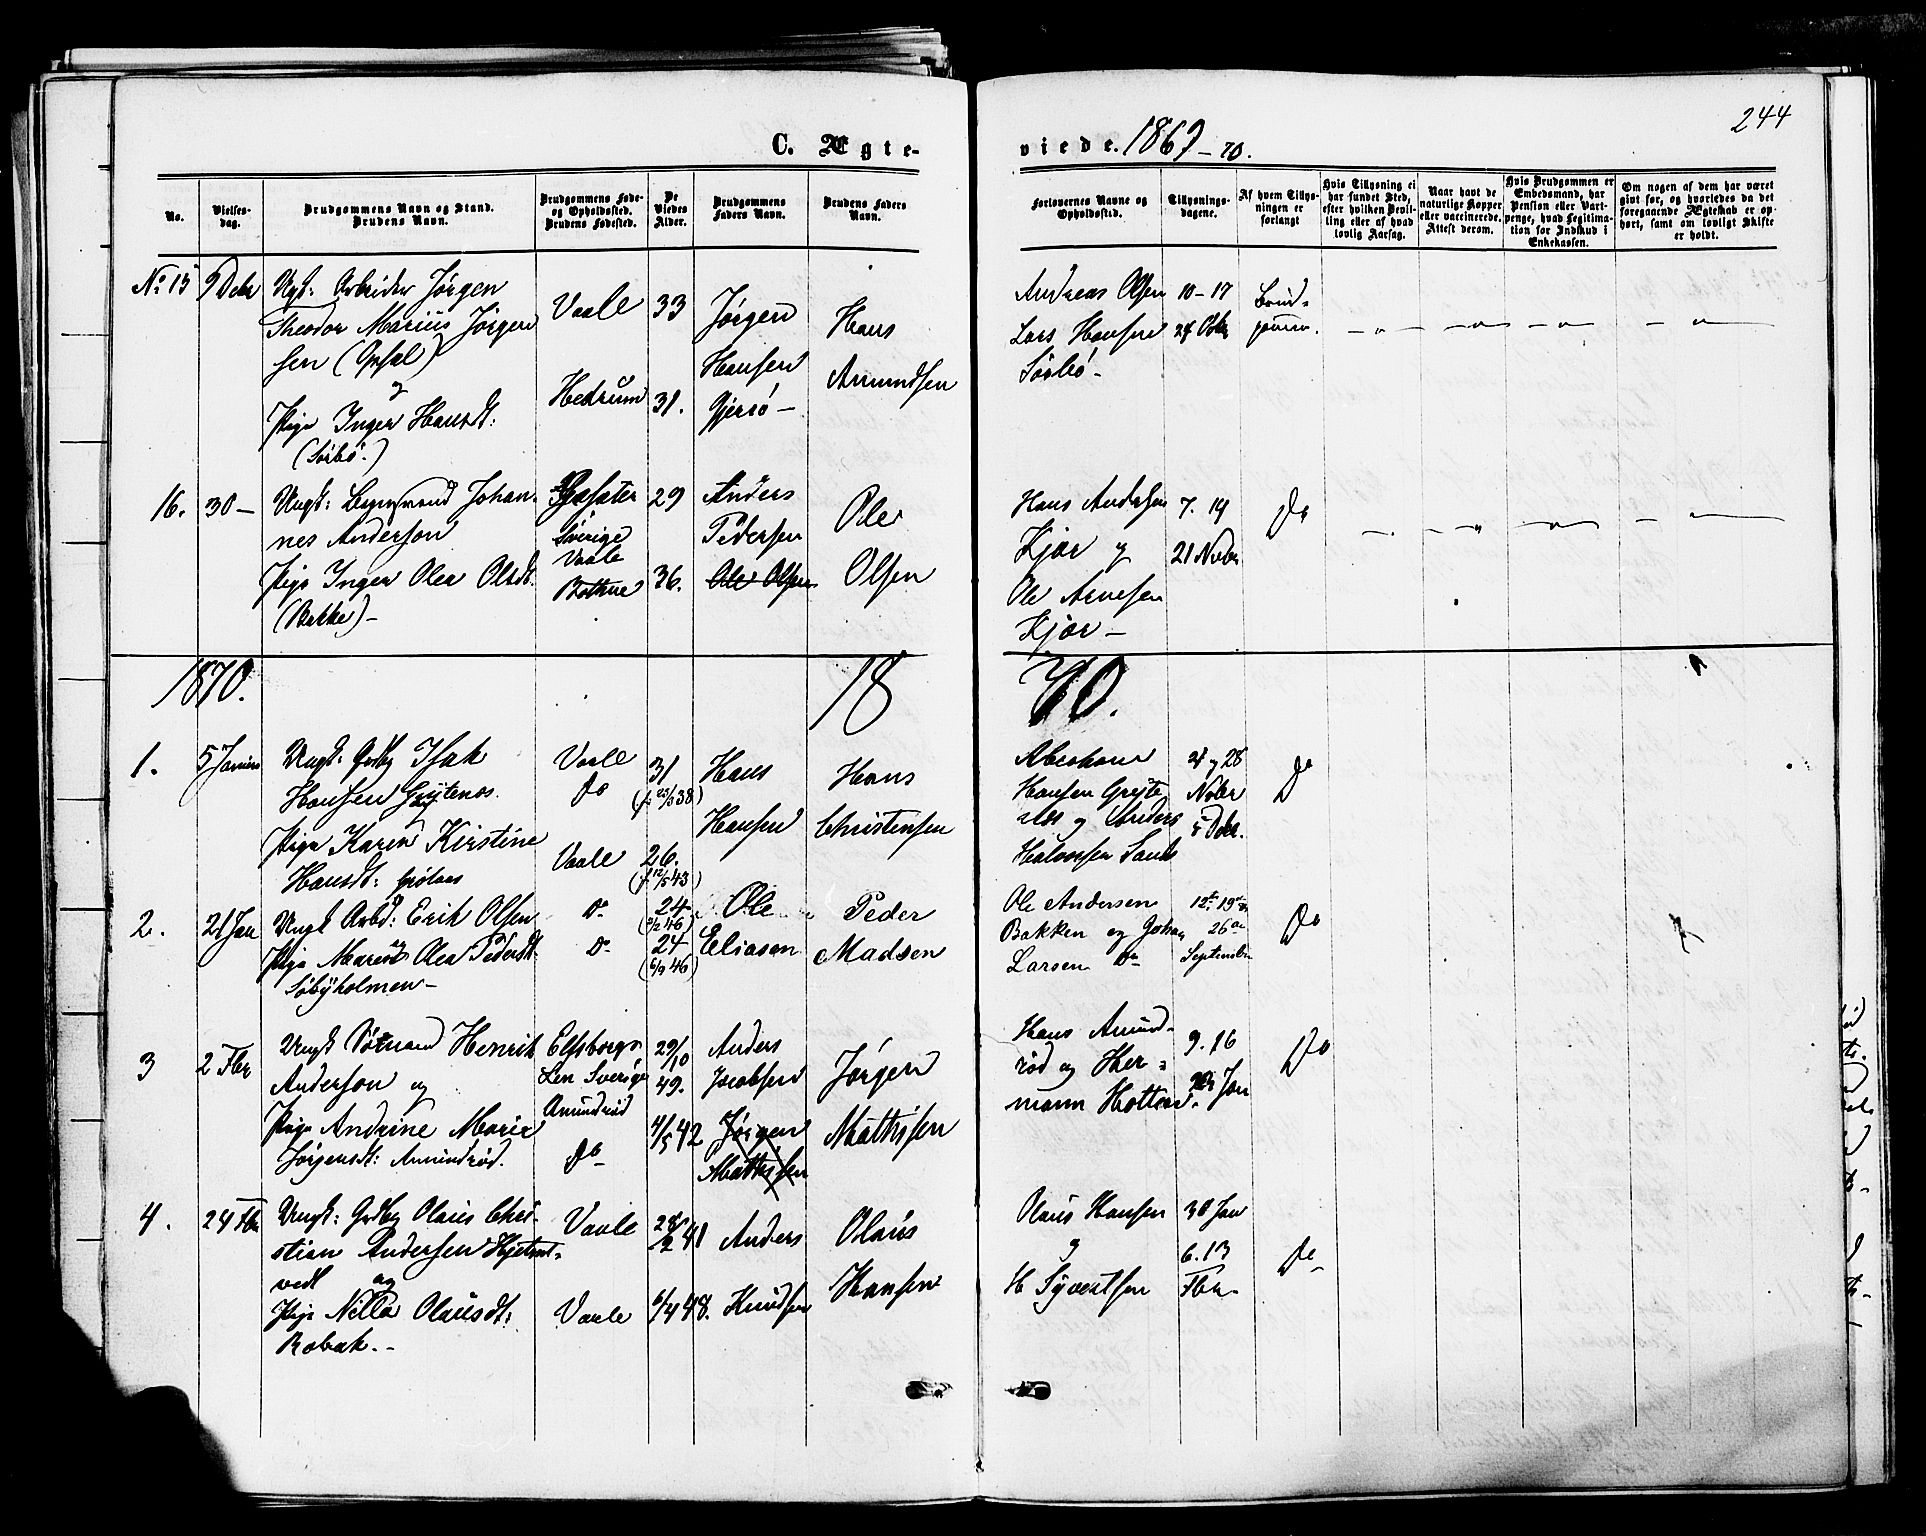 244
C. Ægte-
viede. 1869-70.
No.
Vielses-
dag.
Brudgommens Navn og Stand.
Brudens Navn.
Brudgommens Føde-
og Opholdssted.
Brudens Fødested.
De
Viedes
Alder.
Brudgommens
Faders Navn.
Brudens Faders
Navn.
Forlovernes Navne og
Opholdssted.
Tillysnings-
dagene.
Af hvem Tillys-
ningen er
forlangt
Hvis Tillysning ei
har fundet Sted,
efter hvilken Bevil-
ling eller af hvad
lovlig Aarsag.
Naar havt de
naturlige Kopper
eller vaccinerede.
Attest derom.
Hvis Brudgommen er
Embedsmand, har
Pension eller Vart-
penge, hvad Legitima-
tion for Indskud i
Enkekassen.
Om nogen af dem har været
gift før, og hvorledes da det
foregaaende Ægteskab er op-
hørt, samt om lovligt Skifte
er holdt.
No 15
9 Debr
Ugt: Arbeider Jørgen
Theodor Marius Jørgen
sen (Opsal)
og
Pige Inger Hansdt:
(Sørbø.)
Vaale
Hedrum
33
31.
Jørgen
Hansen
Gjersø -
Hans
Amundsen
Andreas Olsen
Lars Hansen
Sørbø -
10-17
24 Obr
Brud-
gommen.
16.
30 -
Ungk: Johan-
nes Anderson
Pige Inger Olea Olsdt.
(Bakke) -
Sverige
Vaale
Bothne
29
36.
Anders
Pedersen
Ole Olsen
Ole
Olsen
Hans Andersen
Kjær og
Ole Arnesen
Kjær -
7. 14
21 Novbr
Do
1870.
18
70.
1.
5 Januar
Ungk: Gdbr Isak
Hansen Grytenes.
Pige Karen Kirstine
Hansdt:
Vaale
Do
Vaale
31
(f. 25/3 38)
26.
(f. 12/5 43)
Hans
Hansen
Hans
Christensen
Abraham
Hansen Grytenes og Anders
Halvorsen Sand
og 28
Novbr
5 Debr.
Do
2.
21 Jan
Ungk Arbd: Erik Olsen
og
Pige Maren Olea Pedersdt.
Søbyholmen -
Do
Do
24
(3/2 46)
24
(6/9 46)
Ole
Eliasen
Peder
Madsen
Ole Andersen
Bakken og Johan
Larsen Do
12te 19de
26de
September
Do
3
2 Fbr
Ungk Henrik
Anderson og
Pige Andrine Marie
Jørgensdt: Amundrød.
Elfsborgs
Len Sverige
Amundrød
Do
29/10
49.
4/5 42
Anders
Jacobsen
Jørgen
Mathisen
Jørgen
Mathisen
Hans Amund-
rød og Her-
mann
9. 16
Jan
Do
4.
24 Fbr
Ungk: Gdbr Olaus Chri-
stian Andersen
vedt og
Pige Nilla Olausdt:
Robak. -
Vaale
Vaale
28/2 41
6/4 48.
Anders
Knudsen
Olaus
Hansen
Olaus Hansen
og
H Syvertsen
30 Jan
6. 13
Fbr
Do